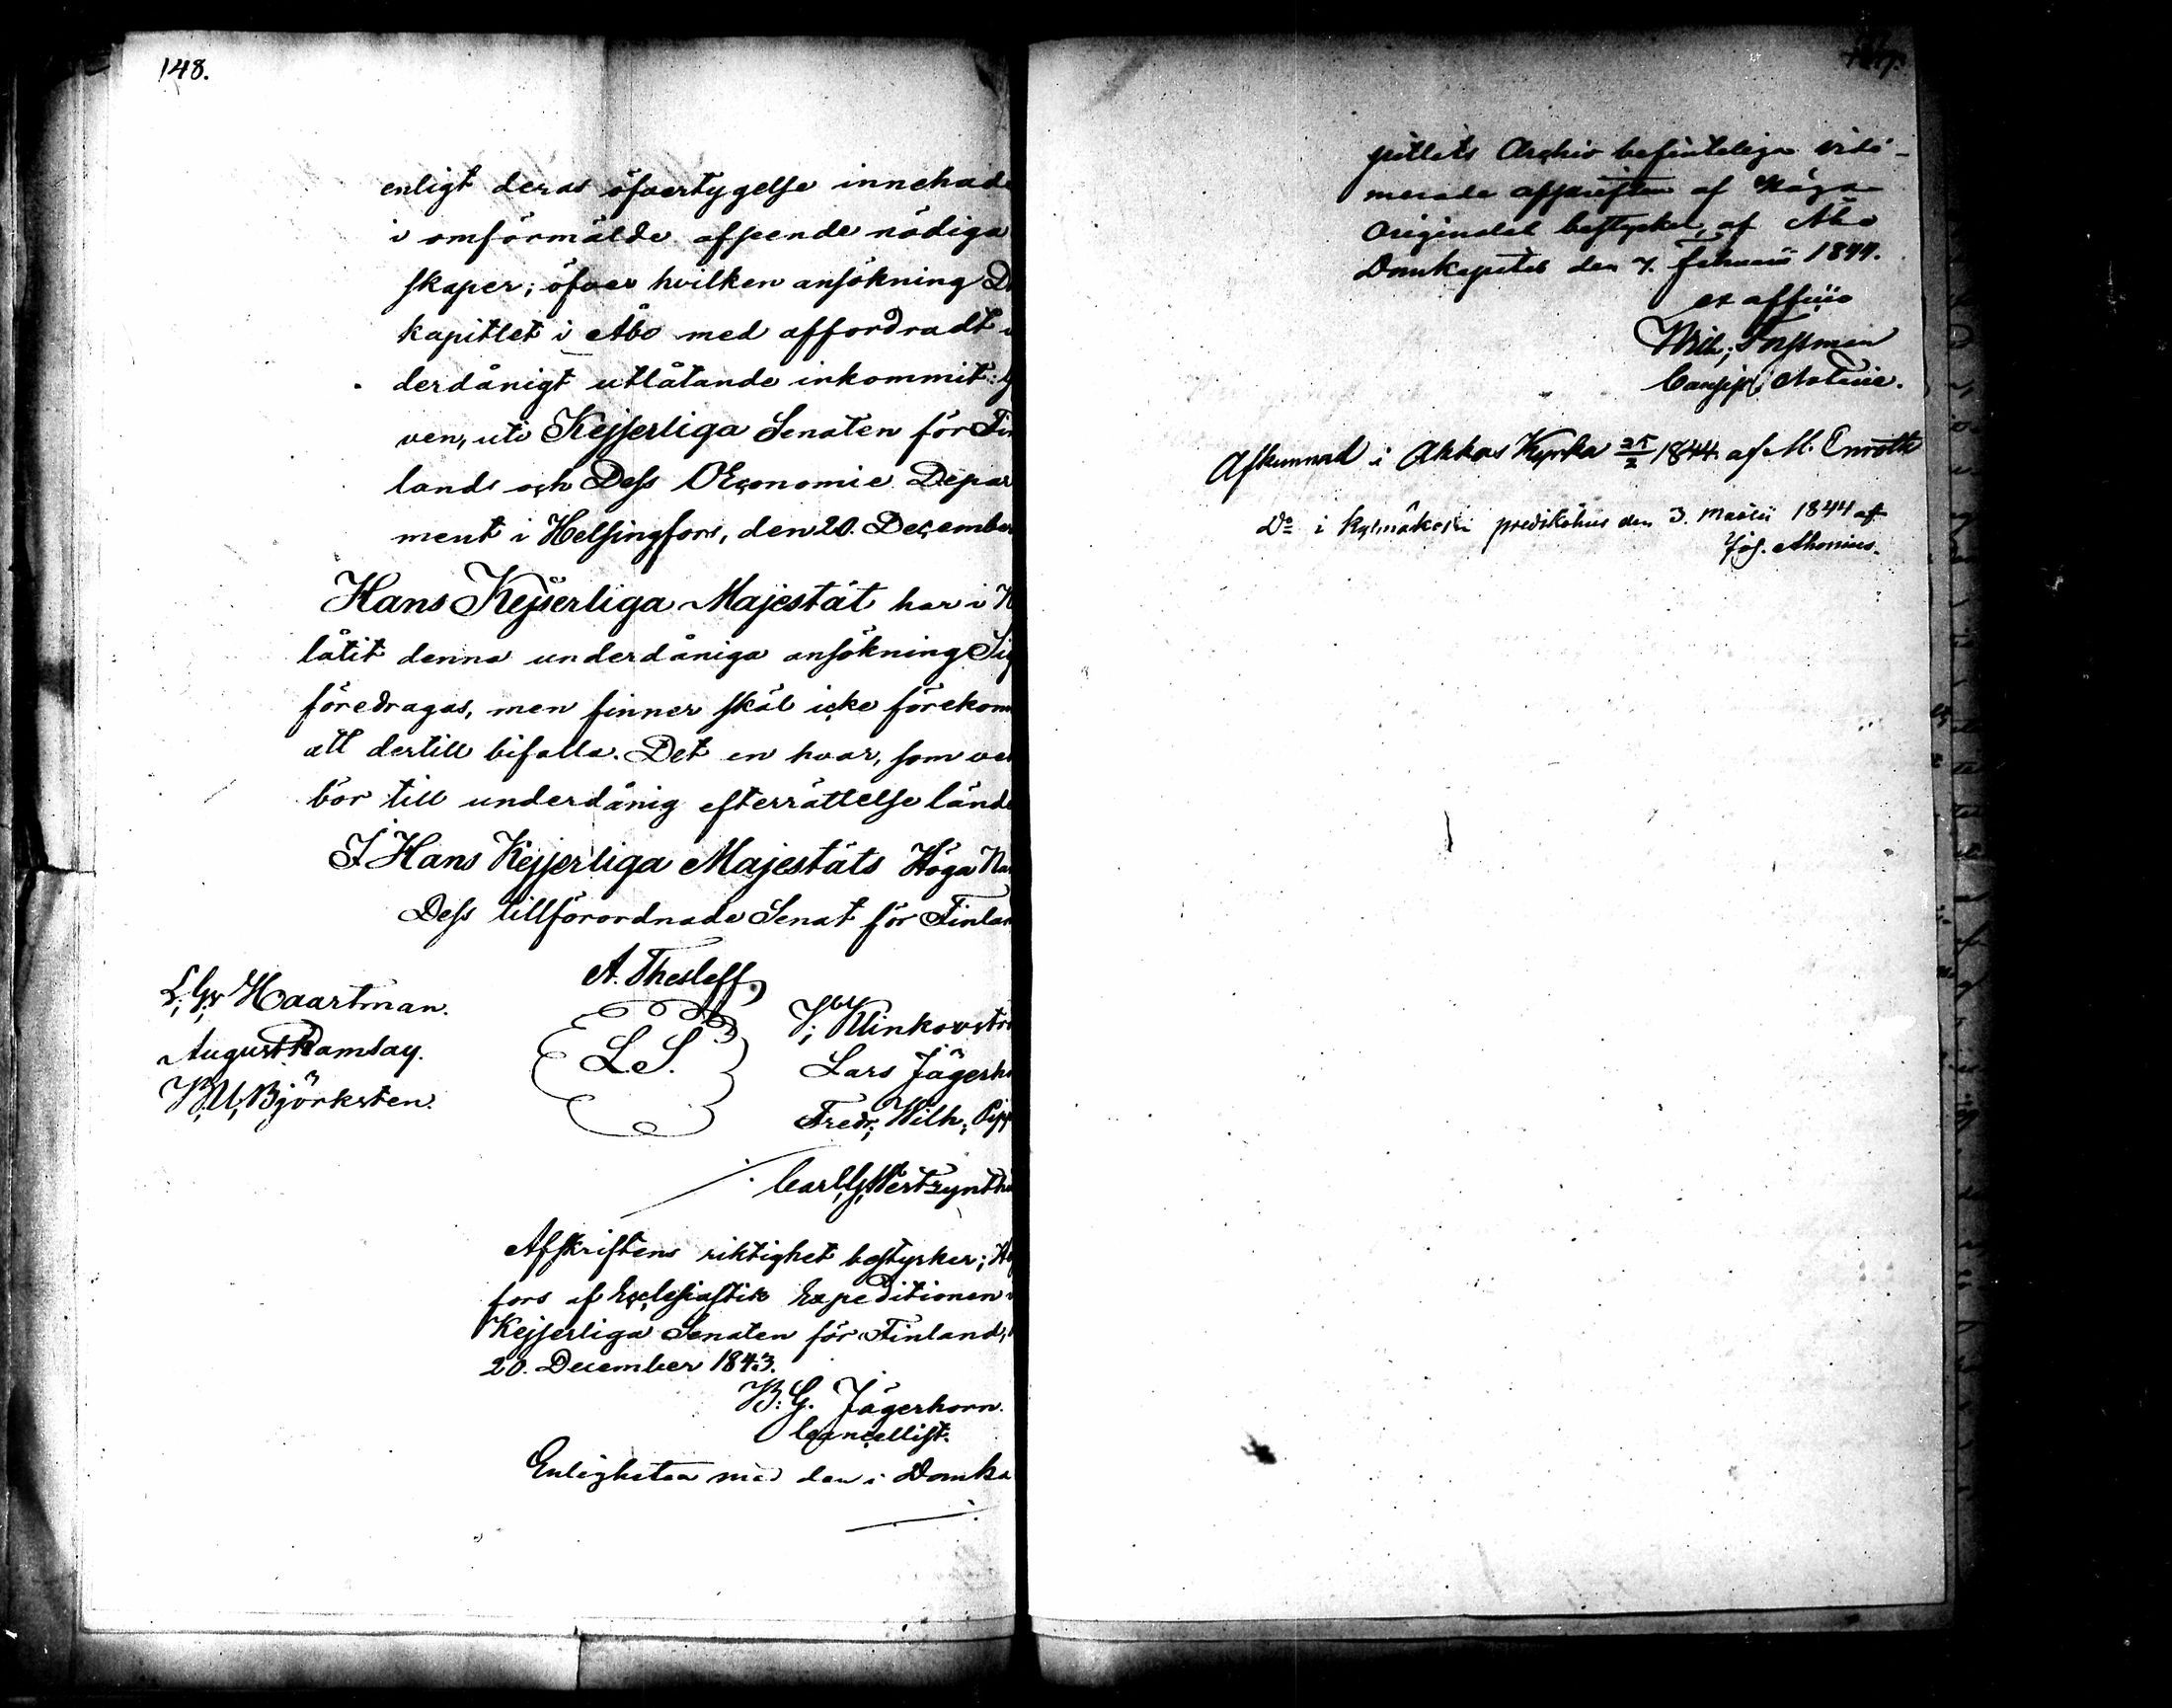 148.
enligt deras öfvertygelse innehade
i omförmälde afseende nödiga
skaper; öfver hvilken ansökning D
kapitlet i Åbo med affordradt
derdånigt utlåtande inkommit:
ven, uti Kejserliga Senaten för Fin
lands och Dess Œconomie Depar
ment i Helsingfors, den 20. December
Hans Kejserliga Majestät har i N
låtit denna underdåniga ansökning Sig
föredragas, men finner skäl icke förekom
att dertill bifalla. Det en hvar, som ve
bör till underdånig efterrättelse lände
I Hans Kejserliga Majestäts Höga Na
Dess tillförordnade Senat för Finlan
A. Thesleff
L. G. v Haartman.
August Ramsay.
B. U. Björksten.
L. S.
Klinkovstr
Lars Jägerho
Fredr. Wilh. Pipp
Carl G. Hertzynthe
Afskriftens riktighet bestyrker; He
fors af Ecclesiastik Expeditionen i
Kejserliga Senaten för Finland,
20. December 1843.
B. G. Jägerhorn.
Cancellist.
Enligheten med den i Domka
pitlets Archiv befinteliga vidi-
merade afskriften af Höga
Originalet bestyrker, af Åbo
Domkapitel den 7. Februarii 1844.
ex officio
Wilh; Forssman
Consist; Notarie.
Afkunnad i Akkas Kyrka 25/2 1844 af M. Enroth
Do i Kylmäkoski predikohus den 3. Martii 1844 af
Joh. Ahonius.